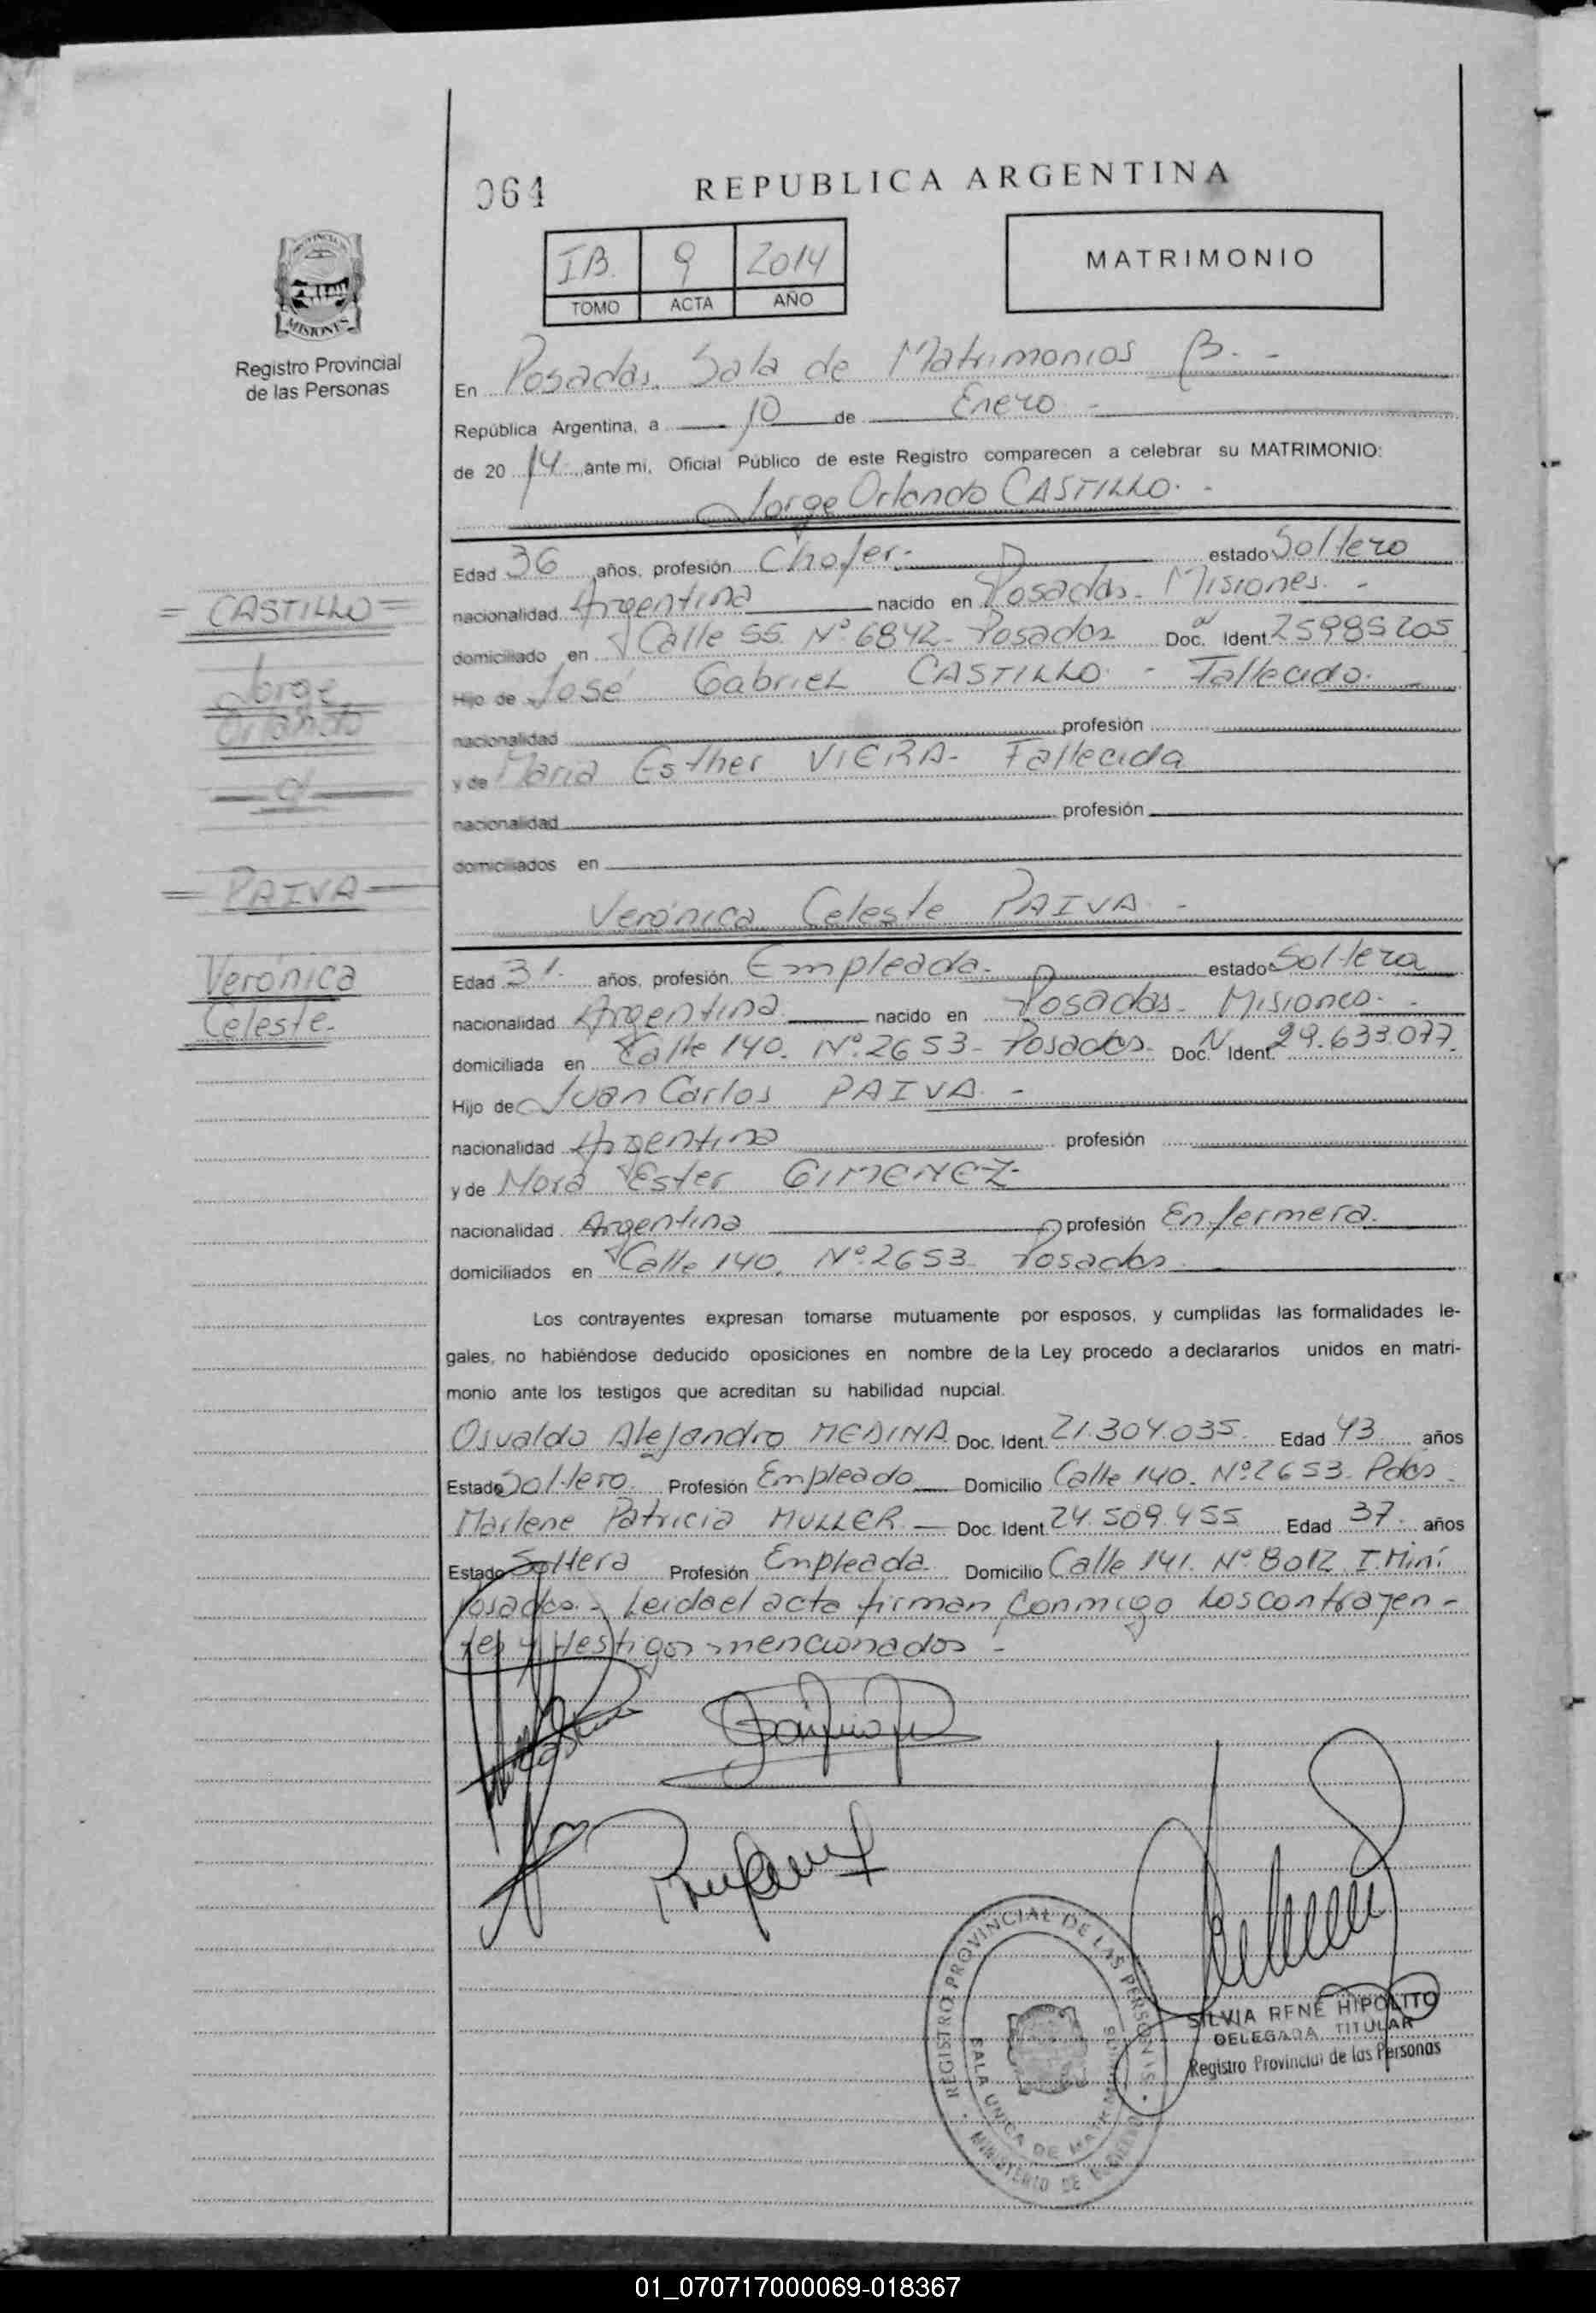 064
REPUBLICA ARGENTINA
IB. 9 2014
TOMO ACTA AÑO
MATRIMONIO
PROVINCIA DE
MISIONES
Registro Provincial
de las Personas
En Posadas. Sala de Matrimonios B. -
República Argentina, a 10 de Enero -
de 20 14 ante mi, Oficial Público de este Registro comparecen a celebrar su MATRIMONIO:
Jorge Orlando CASTILLO. -
Edad 36 años, profesión Chofer.- estado Soltero
nacionalidad Argentina nacido en Posadas - Misiones. -
domiciliado en Calle 55. Nº 6842- Posadas Doc. Ident. 25985205
Hijo de José Gabriel CASTILLO - Fallecido. -
nacionalidad profesión
y de Maria Esther VIERA- Fallecida
nacionalidad profesión
domiciliados en
= CASTILLO =
Jorge
Orlando
= PAIVA
Verónica
Celeste.
Verónica Celeste PAIVA -
Edad 31. años, profesión Empleada- estado Soltera
nacionalidad Argentina nacido en Posadas - Misiones. -
domiciliada en Calle 140. Nº 2653- Posadas Doc. N Ident. 29.633.077.
Hijo de Juan Carlos PAIVA -
nacionalidad Argentino profesión
y de Mora Ester GIMENEZ-
nacionalidad Argentina profesión Enfermera.
domiciliados en Calle 140. Nº 2653 Posadas
Los contrayentes expresan tomarse mutuamente por esposos, y cumplidas las formalidades le-
gales, no habiéndose deducido oposiciones en nombre de la Ley procedo a declararlos unidos en matri-
monio ante los testigos que acreditan su habilidad nupcial.
Osvaldo Alejandro MEDINA Doc. Ident. 21.304.035 Edad 43 años
Estado Soltero. Profesión Empleado Domicilio Calle 140. Nº 2653. Pdas -
Marlene Patricia MULLER - Doc. Ident. 24.509.455 Edad 37. años
Estado Soltera Profesión Empleada. Domicilio Calle 141. Nº 8012 I. Miní
Posadas - Leida el acta firman conmigo los contrayen-
tes y testigos mencionados -
REGISTRO PROVINCIAL DE LAS PERSONAS
SALA UNICA DE MATRIMONIOS
MINISTERIO DE GOBIERNO
SILVIA RENE HIPOLITO
DELEGADA TITULAR
Registro Provincial de las Personas
01_070717000069-018367